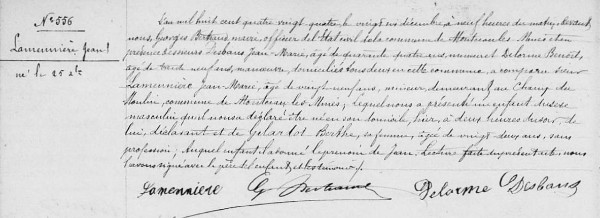 N° 556
Lamennière Jean
né le 25 Xbre
L'an mil huit cent quatre vingt quatre le vingt six décembre à neuf heures du matin, devant
nous, Georges Bertrand maire, officier de l'état civil de la commune de Montceau les Mines et en
présence de sieurs Desbans Jean-Marie, âgé de quarante quatre ans, mineur et Delorme Benoît,
âgé de trente neuf ans, manœuvre, domiciliés tous deux en cette commune, a comparu sieur
Lamennière Jean-Marie, âgé de vingt neuf ans, mineur, demeurant au Champ du
Moulin, commune de Montceau les Mines; lequel nous a présenté un enfant du sexe
masculin qu'il nous a déclaré être né en son domicile, hier, à deux heures du soir, de
lui, déclarant, et de Gelardot Berthe, sa femme, âgée de vingt deux ans, sans
profession; Auquel enfant il a donné le prénom de Jean. Lecture faite du présent acte, nous
l'avons signé avec le père de l'enfant et les témoins.
Lamennière G Bertrand Delorme Desbans